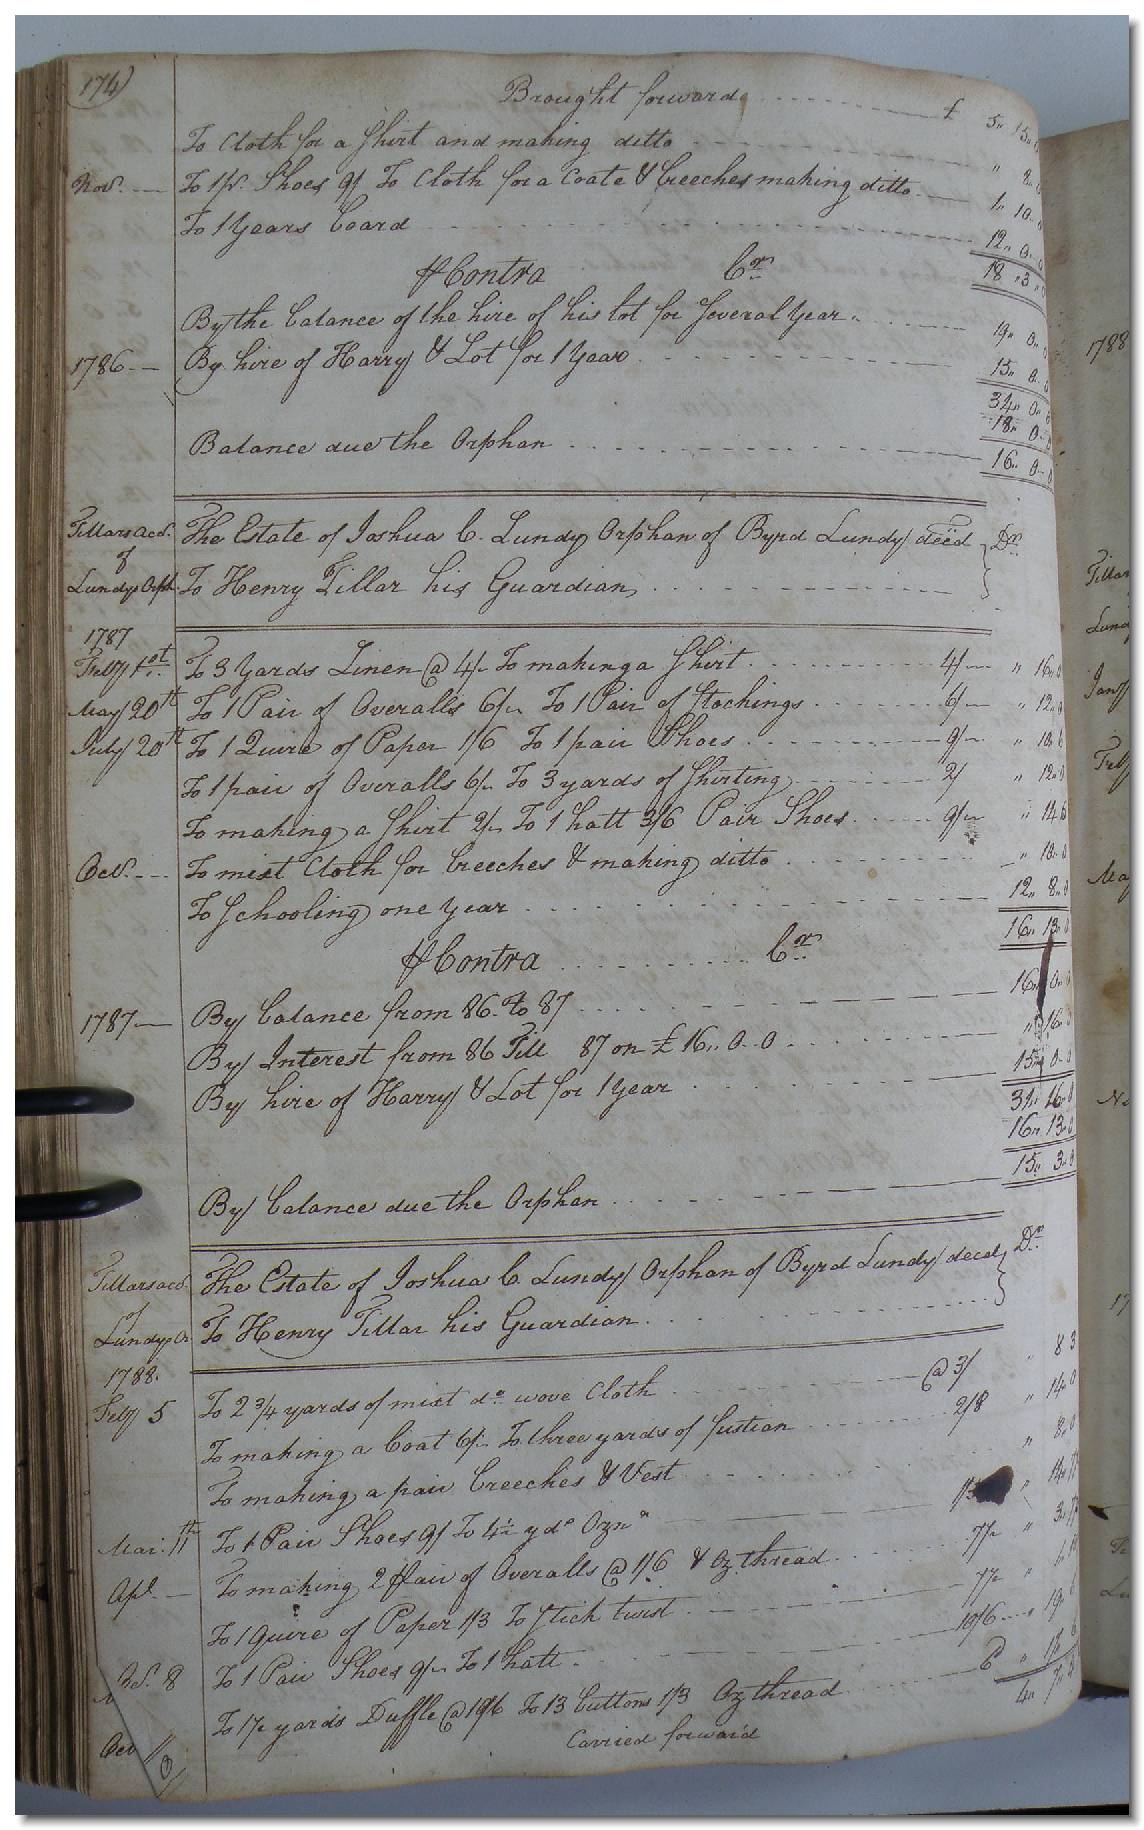 174
Brought forward £ 5" 15"
To Cloth for a Shirt and making ditto " 8"
Nov. To 1 pr. Shoes 9/ To Cloth for a Coate & breeches making ditto 1" 10" 0
To 1 Years board 12" 0" 0
18" 3"
₱ Contra Cr
By the balance of the hire of his lot for several Year 19" 0"
1786 By hire of Harry & Lot for 1 Year 15" 0" 0
34" 0"
18" 0"
Balance due the Orphan 16" 0" 0
Tillars acct. The Estate of Joshua C. Lundy Orphan of Byrd Lundy decd Dr
of
Lundys Orph. To Henry Tillar his Guardian
1787
Feby 1st To 3 Yards Linen @ 4/ To making a Shirt 4/ " 16" 0
May 20th To 1 Pair of Overalls 6/ To 1 Pair of Stockings 6/ " 12" 0
July 20th To 1 Quire of Paper 1/6 To 1 pair Shoes 9/ " 10" 6
To 1 pair of Overalls 6/ To 3 yards of Shirting 2/ " 12" 0
To making a Shirt 2/ To 1 hatt 3/6 Pair Shoes 9/ " 14" 6
Oct. To mixt Cloth for breeches & making ditto " 18" 0
To Schooling one year 12" 8" 0
16" 13" 0
₱ Contra Cr
1787 By balance from 86 to 87 16" 0" 0
By Interest from 86 Till 87 on £ 16" 0" 0 " 16"
By hire of Harry & Lot for 1 Year 15" 0" 0
31" 16" 0
16" 13" 0
15" 3" 0
By balance due the Orphan
Tillars acct. The Estate of Joshua C Lundy Orphan of Byrd Lundy decd Dr
of
Lundys Or To Henry Tillar his Guardian
1788.
Feby 5 To 2 3/4 yards of mixt do wove Cloth @ 3/ " 8 3
To making a Coat 6/ To three yards of fustian 2/8 " 14" 0
To making a pair breeches & Vest " 8" 0
Mar. 11th To 1 Pair Shoes 9/ To 4½ yds Ozn
Apl. To making 2 Pair of Overalls @ 1/6 & Oz thread
To 1 Quire of Paper 1/3 To Stich twist
Oct. 8 To 1 Pair Shoes 9/ To 1 hatt 10/6
Oct To 1½ yards Duffle @ 19/6 To 13 buttons 1/3 Oz thread
Carried forward
1788
Tillar
Lund
Jany
Feby
May
17